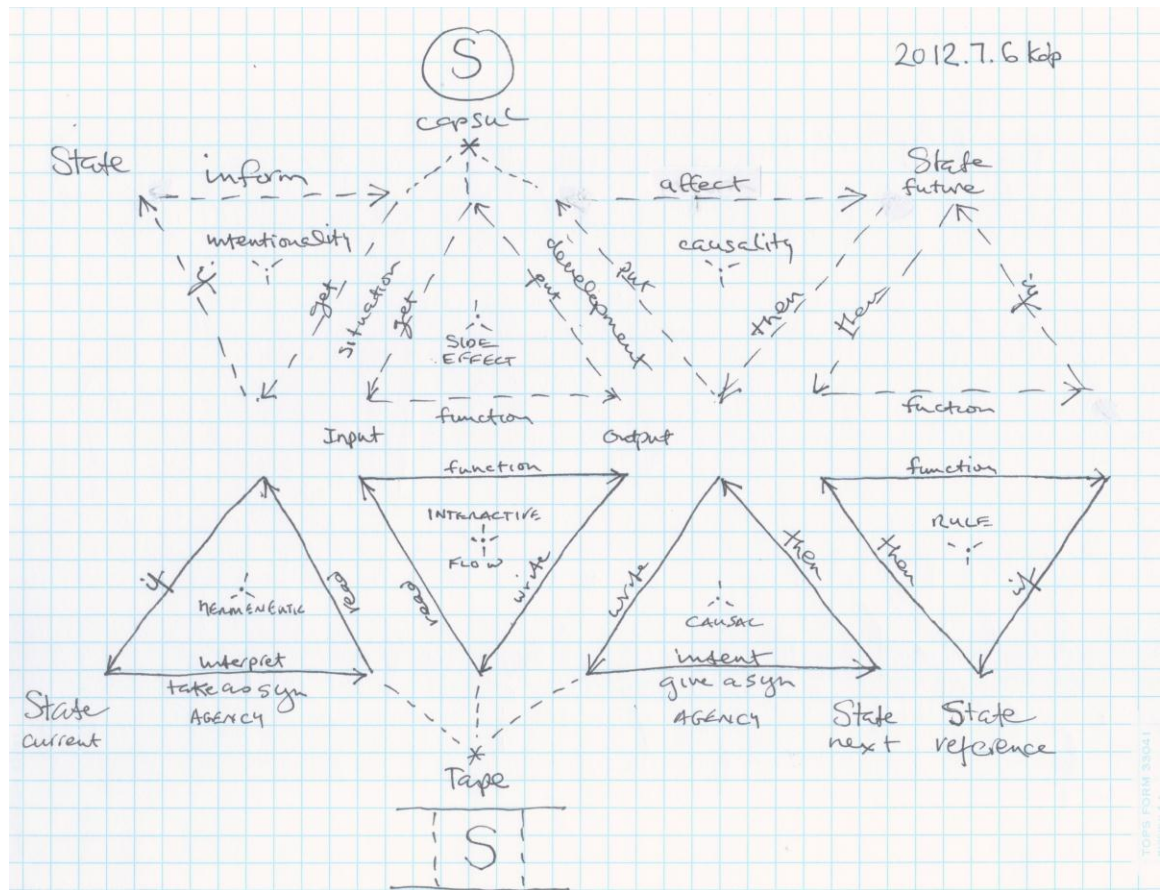 S
2012.7.6 kdp
capsul
State
inform
affect
State
future
intentionality
causality
if
get
situation
get
put
development
put
then
then
if
SIDE
EFFECT
function
function
Input
Output
function
function
INTERACTIVE
FLOW
RULE
if
HERMENEUTIC
read
read
write
write
CAUSAL
then
then
if
interpret
intent
take as syn
give a syn
AGENCY
AGENCY
State
current
State
next
State
reference
Tape
S
TOPS FORM 33041